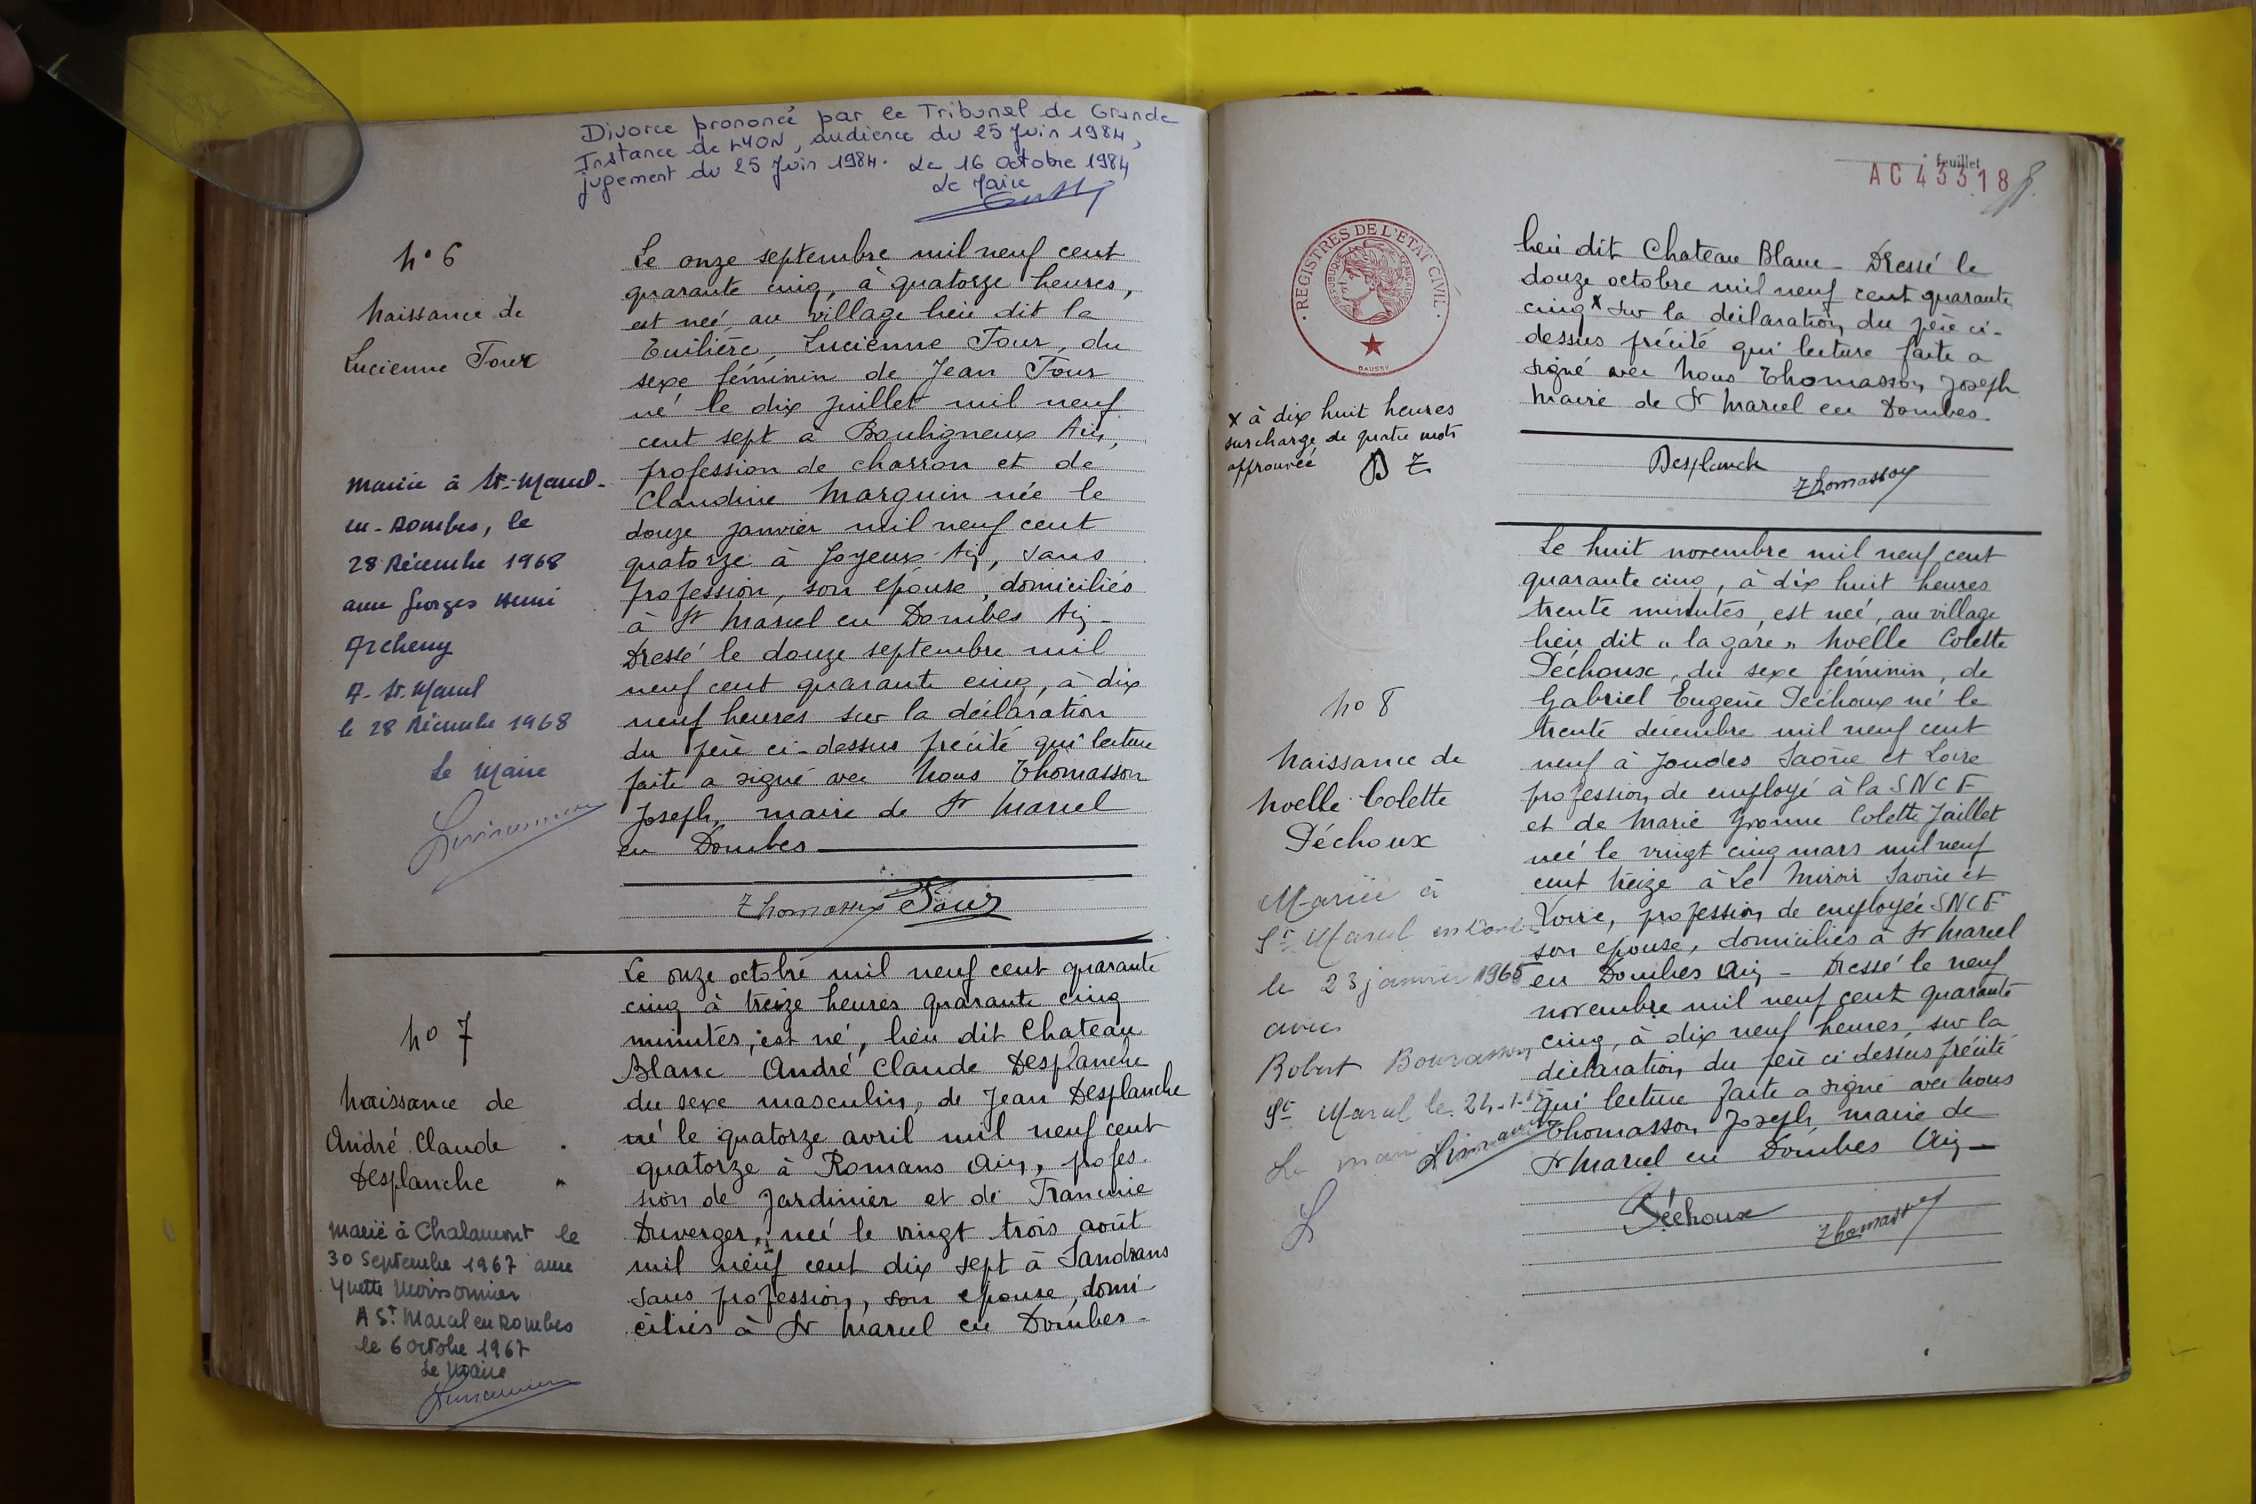 Divorce prononcé par le Tribunal de Grande
Instance de LYON, audience du 25 Juin 1984,
jugement du 25 Juin 1984. Le 16 Octobre 1984
Le Maire
n° 6
Naissance de
Lucienne Four
Mariée à St-Marcel-
en-Dombes, le
28 Décembre 1968
avec Georges Henri
Archeny
A St-Marcel
le 28 Décembre 1968
Le Maire
Le onze septembre mil neuf cent
quarante cinq, à quatorze heures,
est née, au village lieu dit la
Tuilière, Lucienne Four, du
sexe féminin de Jean Four
né le dix juillet mil neuf
cent sept à Bouligneux Ain,
profession de charron et de
Claudine Marguin née le
douze janvier mil neuf cent
quatorze à Joyeux Ain, sans
profession, son épouse, domiciliés
à St Marcel en Dombes Ain -
Dressé le douze septembre mil
neuf cent quarante cinq, à dix
neuf heures sur la déclaration
du père ci-dessus précité qui lecture
faite a signé avec Nous Thomasson
Joseph, maire de St Marcel
en Dombes
Thomasson Four
n° 7
Naissance de
André Claude
Desplanche
Marié à Chalamont le
30 Septembre 1967 avec
Yvette Moissonnier
A St Marcel en Dombes
le 6 Octobre 1967
Le Maire
Le onze octobre mil neuf cent quarante
cinq à treize heures quarante cinq
minutes, est né, lieu dit Chateau
Blanc André Claude Desplanche
du sexe masculin, de Jean Desplanche
né le quatorze avril mil neuf cent
quatorze à Romans Ain, profes-
sion de jardinier et de Francine
Duverger, née le vingt trois août
mil neuf cent dix sept à Sandrans
sans profession, son épouse, domi-
ciliés à St Marcel en Dombes -
feuillet
AC 43318
REGISTRES DE L'ETAT CIVIL
REPUBLIQUE FRANCAISE
DAUSSY
lieu dit Chateau Blanc - Dressé le
douze octobre mil neuf cent quarante
cinq x sur la déclaration du père ci-
dessus précité qui lecture faite a
signé avec Nous Thomasson Joseph
Maire de St Marcel en Dombes -
x à dix huit heures
surcharge de quatre mots
approuvée D T
Desplanche
Thomasson
n° 8
Naissance de
Noelle Colette
Péchoux
Mariée à
St Marcel en Dombes
le 23 janvier 1965
avec
Robert
St Marcel le 24-1-65
Le maire
Le huit novembre mil neuf cent
quarante cinq, à dix huit heures
trente minutes, est née, au village
lieu dit "la gare" Noelle Colette
Péchoux, du sexe féminin, de
Gabriel Eugène Péchoux né le
trente décembre mil neuf cent
neuf à Joudes Saône et Loire
profession de employé à la SNCF
et de Marie Yvonne Colette Jaillet
née le vingt cinq mars mil neuf
cent treize à Le Miroir Saône et
Loire, profession de employée SNCF
son épouse, domiciliés à St Marcel
en Dombes Ain - Dressé le neuf
novembre mil neuf cent quarante
cinq, à dix neuf heures, sur la
déclaration du père ci dessus précité
qui lecture faite a signé avec Nous
Thomasson Joseph, maire de
St Marcel en Dombes Ain -
Péchoux
Thomasson